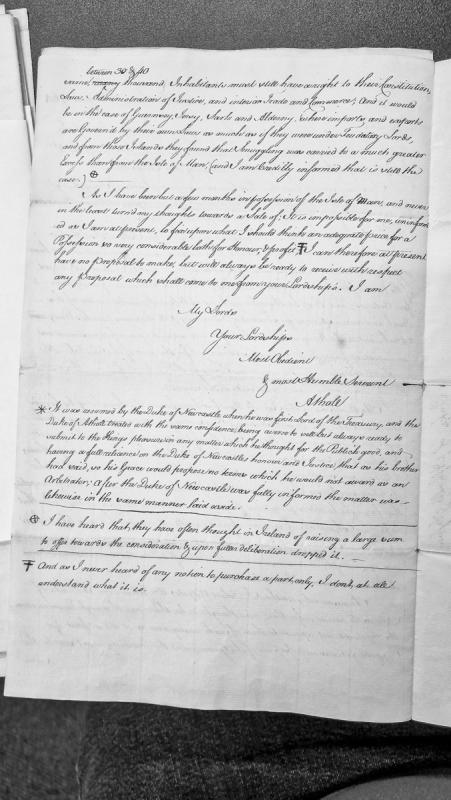 between 30 & 40
thousand, Inhabitants must still have a right to their Constitution,
Laws, Administration of Justice, and interior Trade and Commerce; And it would
be in the case of Guernsey, Jersey, Sark and Alderny, where imports and exports
are Govern'd by their own Laws as much as if they were under Feudatary Lords,
and from those Islands they found that Smuggling was carried to a much greater
Excess than from the Isle of Man, (and I am Credibly informed that is still the
case.) ⊕
As I have been but a few months in possession of the Isle of Man, and never
in the least turn'd my thoughts towards a Sale of it; It is impossible for me, uninform
ed as I am at present, to fix upon what I should think an adequate price for a
Possession so very considerable both for Honour, & profit; Ŧ I can therefore at present
have no proposal to make, but will always be ready to receive with respect
any proposal which shall come to me from your Lordships. I am
My Lords
Your Lordships
Most Obedient
& most Humble Servant
Atholl
* It was assured by the Duke of Newcastle when he was first Lord of the Treasury, and the
Duke of Atholl treated with the same confidence; being averse to sell but always ready to
submit to the Kings pleasure in any matter which he thought for the Publick good, and
having a full reliance on the Duke of Newcastles honour and Justice, that as his brother
had said, so his Grace would propose no terms which he would not award as an
Arbitrator; After the Duke of Newcastle was fully inform'd the matter was
likewise in the same manner laid aside.
⊕ I have heard that, they have often thought in Ireland of raising a large sum
to offer towards the consideration & upon fuller deliberation dropped it.
Ŧ And as I never heard of any notion to purchase a part, only, I dont, at all
understand what it is.